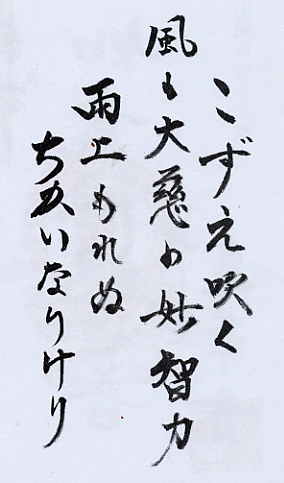 こずえ吹く
風も大慈の妙智力
雨上もれぬ
ちかいなりけり